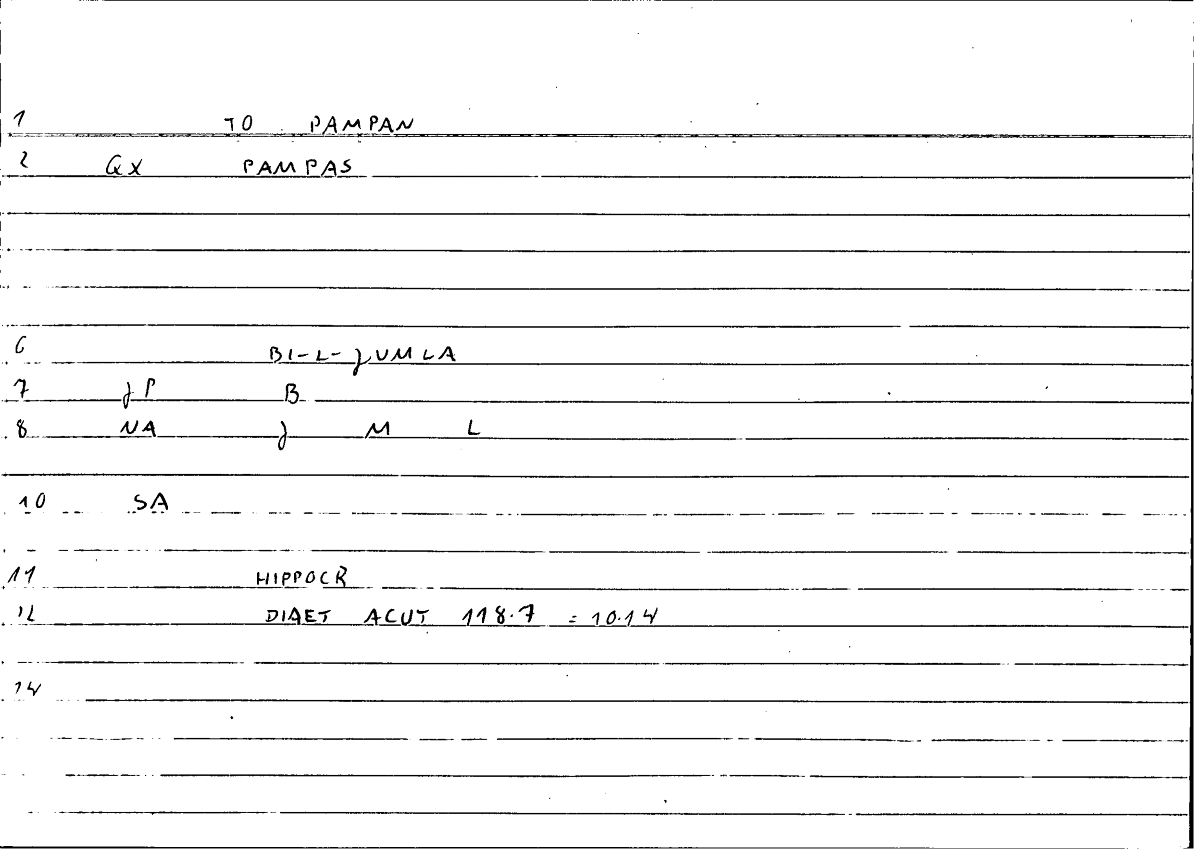 1 TO PAMPAN
2 GX PAMPAS
6 BI-L-JUMLA
7 JP B
8 NA J M L
10 SA
11 HIPPOCR
12 DIAET ACUT 118.7 = 10.14
14